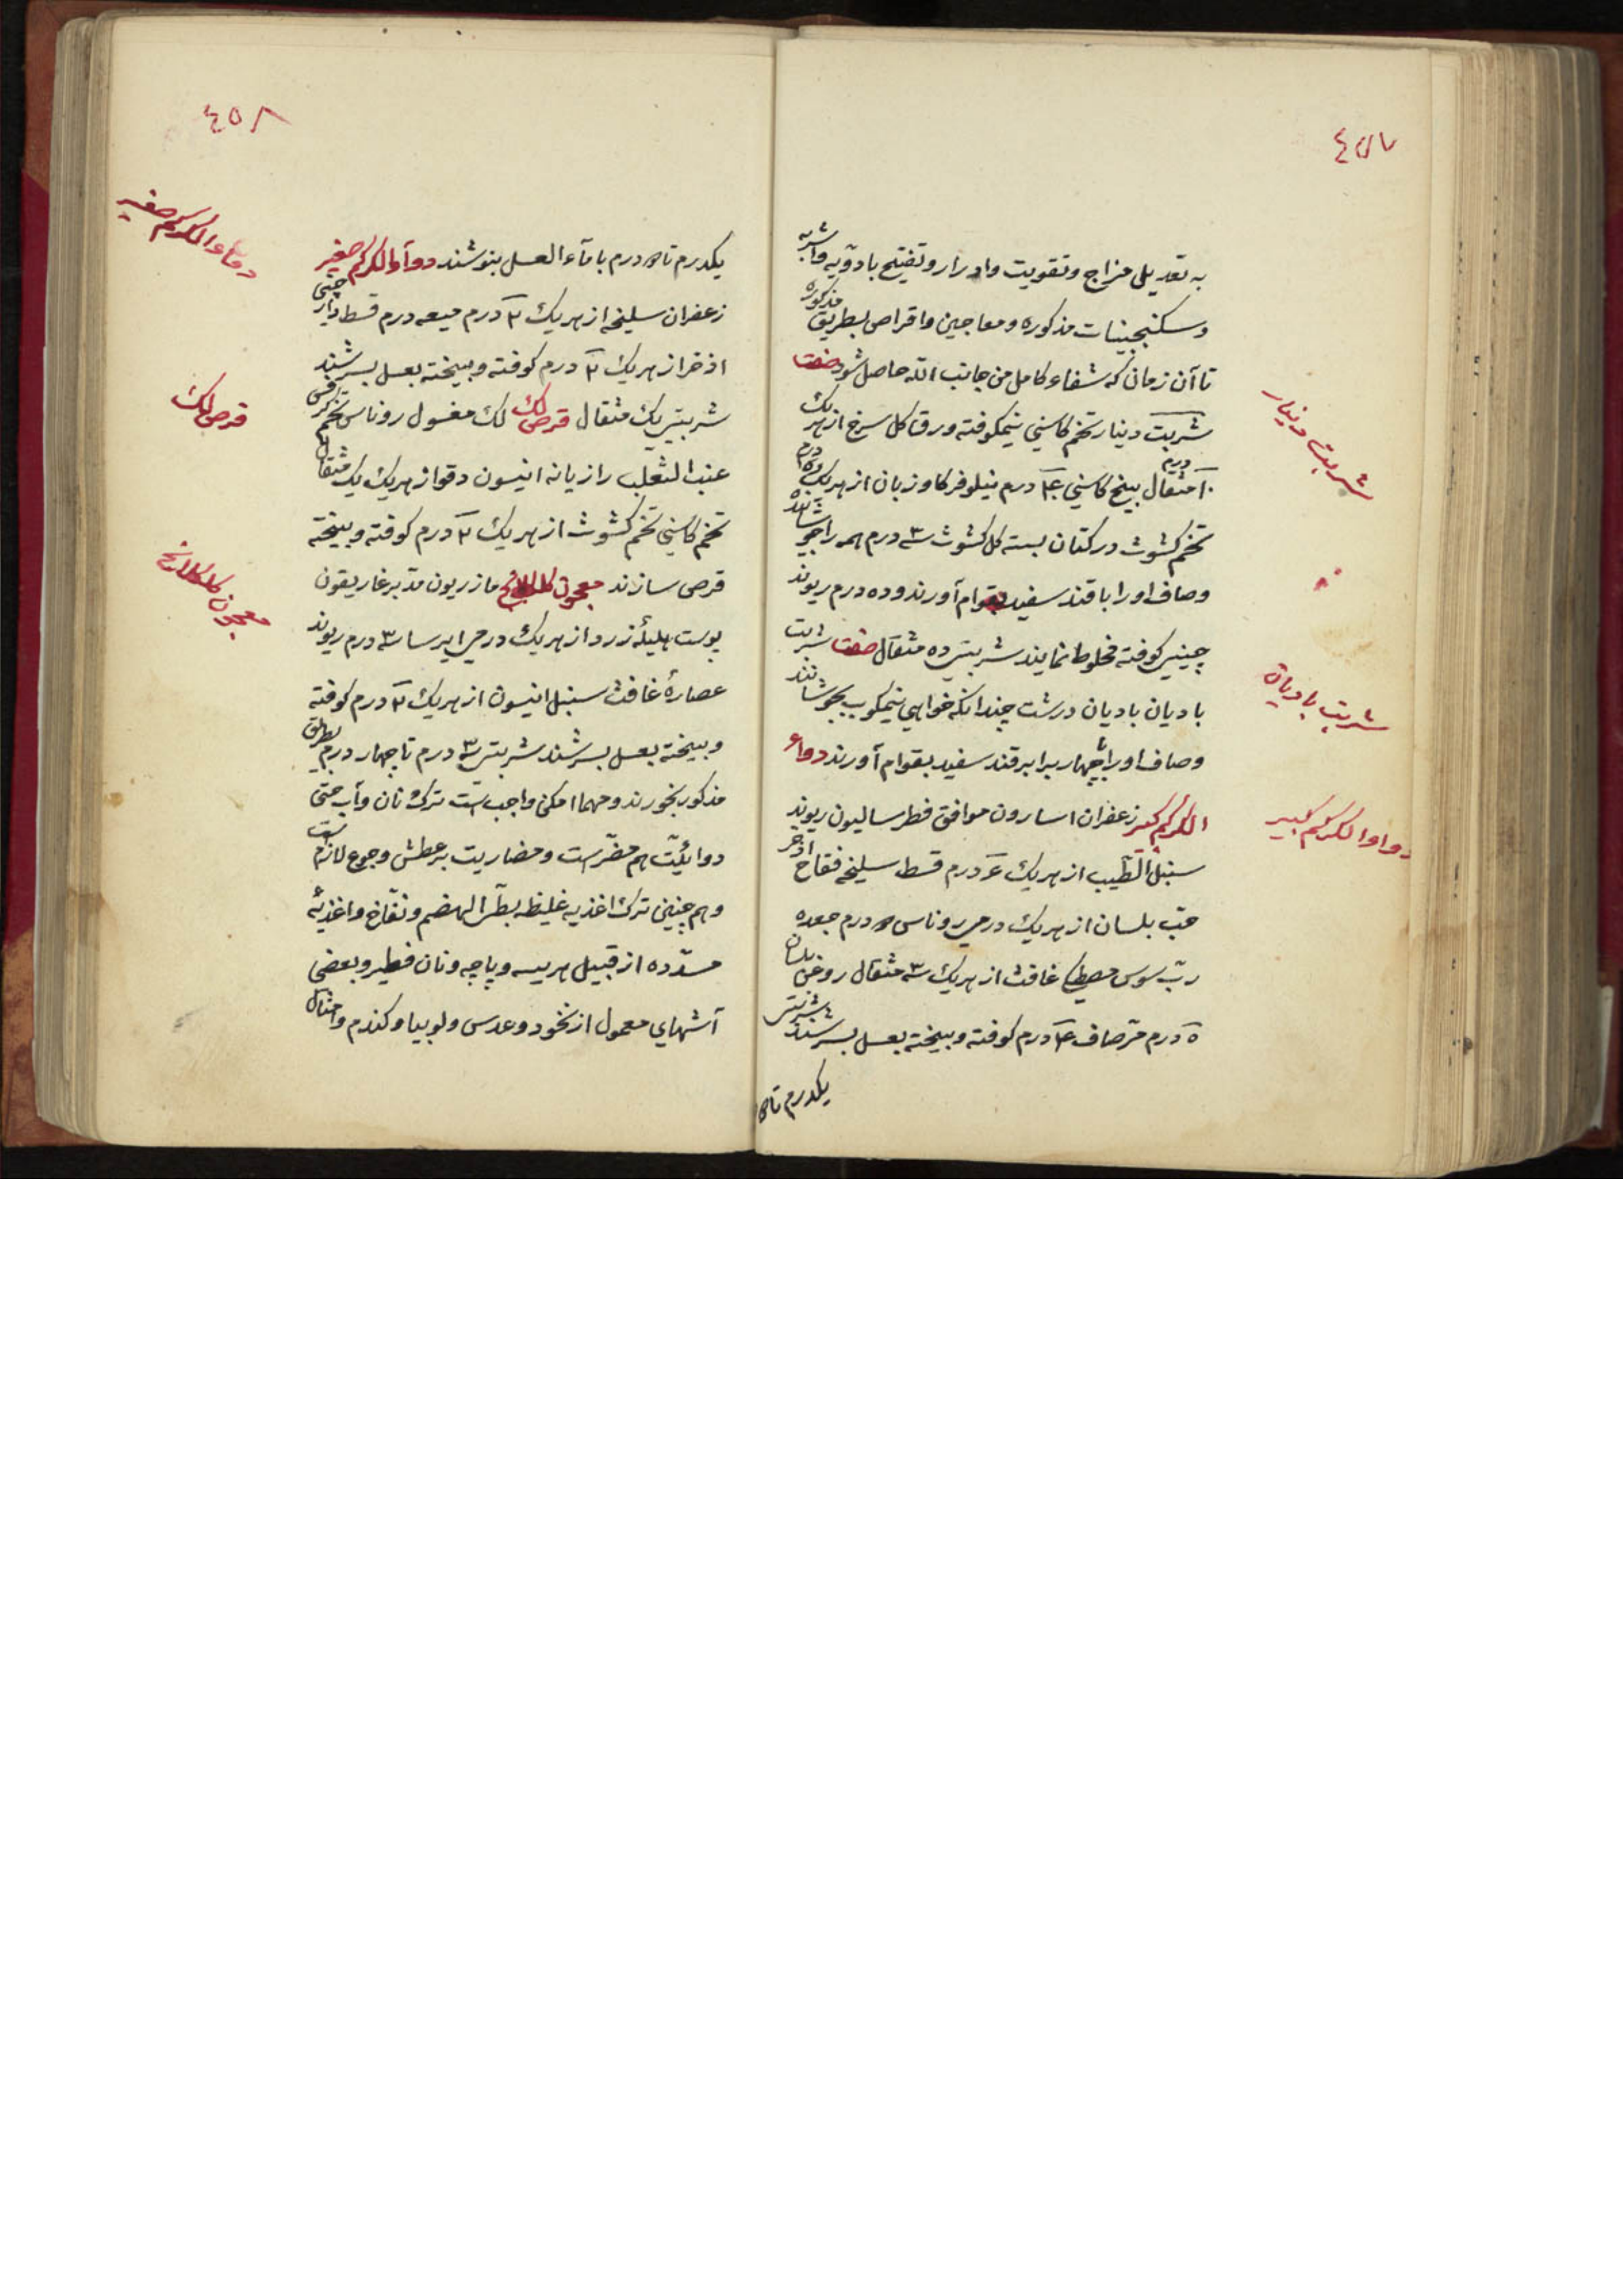 ٤٥٧
به تعدیل مزاج و تقویت و ادرار و تفتیح بادویه و اشربه
و سکنجبینات مذکوره و معاجین و اقراص بطریق مذکوره
تا آن زمان که شفاء کامل من جانب الله حاصل شود صفت
شربت دینار تخم کاسنی نیمکوفته ورق کل سرخ از هریک
مثقال بیخ کاسنی درم نیلوفر کاوزبان از هریک درم
تخم کشوث در کتان بسته کل کشوث ۳ درم همه را بجوشانند
و صاف او را با قند سفید بقوام آورند و ده درم ریوند
چینی کوفته مخلوط نمایند شربتش ده مثقال صفت شربت
بادیان بادیان درشت چندانکه خواهی نیمکوب بجوشانند
و صاف او را با چهار برابر قند سفید بقوام آورند دواء
الکرکم کبیر زعفران اسارون موافق فطرسالیون ریوند
سنبل الطیب از هریک درم قسط سلیخه فقاح اذخر
حب بلسان از هریک درمی روناس درم جعده
رب سوس مصطکی غافث از هریک ۳ مثقال روغن بلسان
۵ درم مرصاف درم کوفته و بیخته بعسل بسرشند شربتش
یکدرم تا
شربت دینار
شربت بادیان
دواء الکرکم کبیر
٤٥٨
یکدرم تا درم با ماء العسل بنوشند دواء الکرکم صغیر
زعفران سلیخه از هریک ۲ درم میعه درم قسط دارچینی
اذخر از هریک ۲ درم کوفته و بیخته بعسل بسرشند
شربتش یک مثقال قرص لک لک مغسول روناس تخم کرفس
عنب الثعلب رازیانه انیسون دقو از هریک یک مثقال
تخم کاسنی تخم کشوث از هریک ۲ درم کوفته و بیخته
قرص سازند معجون کلکلانج مازریون مدبر غاریقون
پوست هلیله زرد از هریک درمی ایرسا ۳ درم ریوند
عصاره غافث سنبل انیسون از هریک ۲ درم کوفته
و بیخته بعسل بسرشند شربتش ۳ درم تا چهار درم بطریق
مذکور بخورند و مهما امکن واجب است ترک نان و آب حتی
دوائیت هم مضر است و مضاریت بر عطش و جوع لازم است
و هم چنین ترک اغذیه غلیظه بطئ الهضم و نفاخ و اغذیه
مسدده از قبیل هریسه و پاچه و نان فطیر و بعضی
آشهای معمول از نخود و عدس و لوبیا و کندم و امثال
دواء الکرکم صغیر
قرص لک
معجون کلکلانج